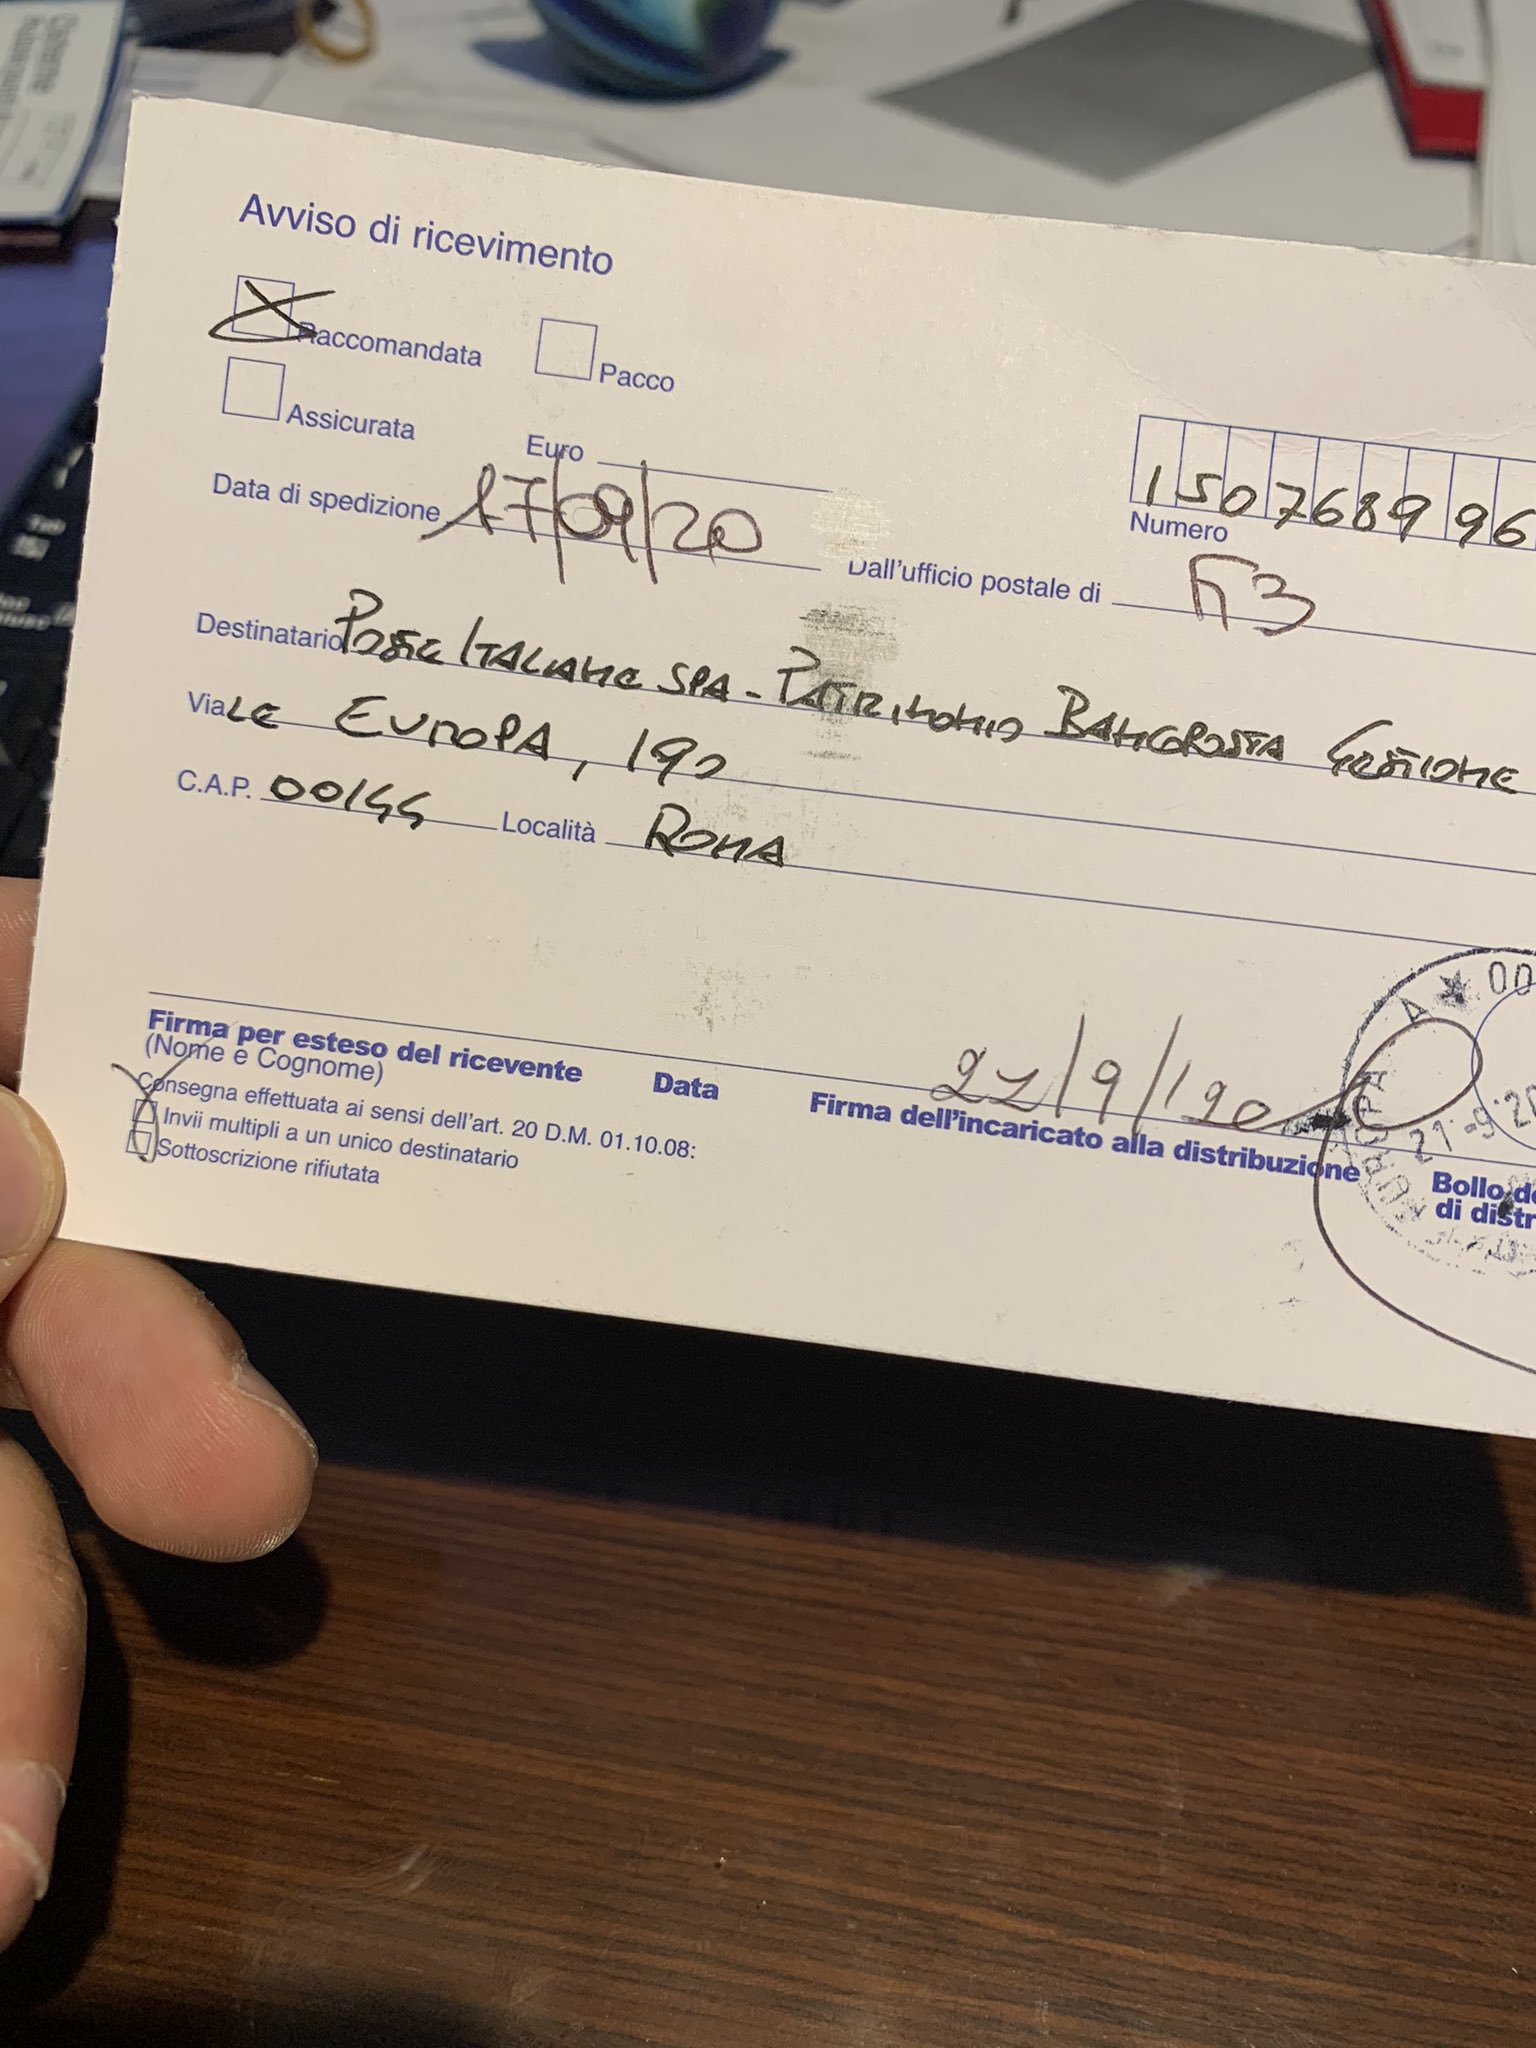 Avviso di ricevimento
Raccomandata Pacco
Assicurata Euro
Data di spedizione 17/09/20 Dall'ufficio postale di
150768996
Numero
Destinatario POSTE ITALIANE SPA - PATRIMONIO BANCOPOSTA GESTIONE
ViaLE EUROPA, 190
C.A.P. 00144 Località ROMA
Firma per esteso del ricevente Data Firma dell'incaricato alla distribuzione Bollo
(Nome e Cognome) di distr
21/9/20
Consegna effettuata ai sensi dell'art. 20 D.M. 01.10.08:
Invii multipli a un unico destinatario
Sottoscrizione rifiutata
21-9-20